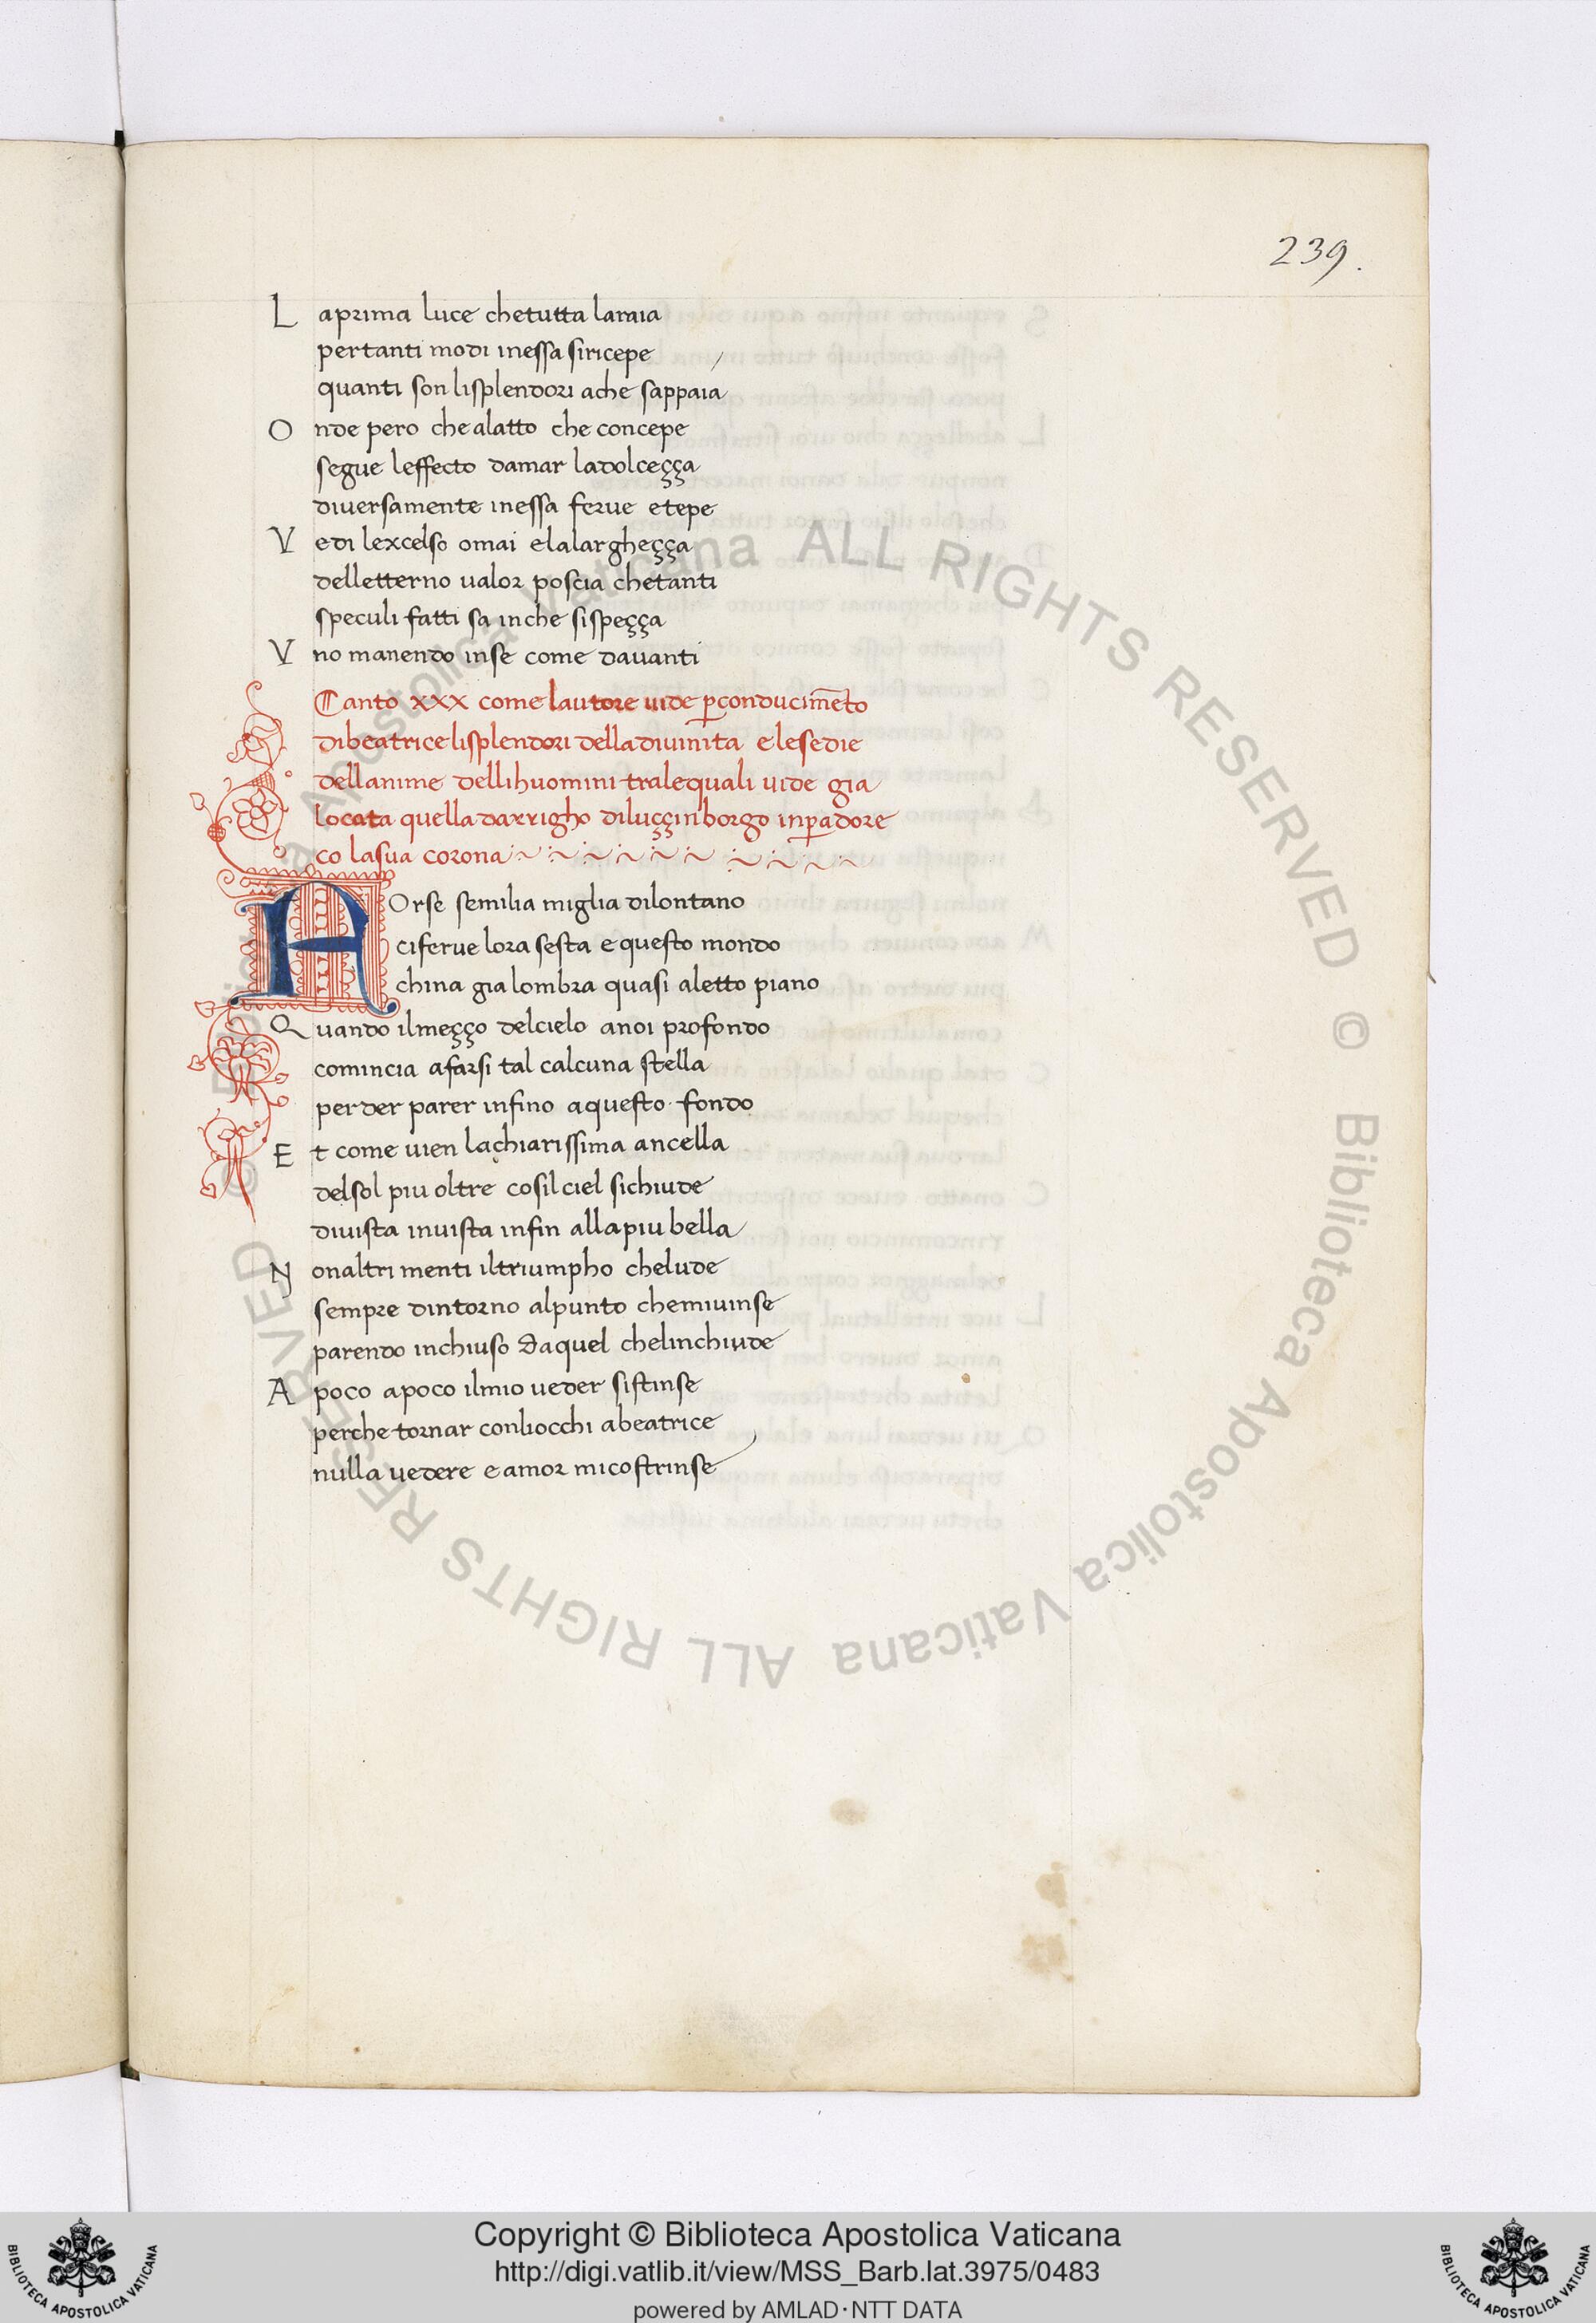 239.
L aprima luce chetutta laraia
pertanti modi inessa siricepe
quanti son lisplendori ache sappaia
O nde pero chealatto che concepe
segue leffecto damar ladolceçça
diuersamente inessa ferue etepe
V edi lexcelso omai elalargheçça
delletterno ualor poscia chetanti
speculi fatti sa inche sispeçça
V no manendo inse come dauanti
Canto xxx come lautore uide ꝑconducim̅eto
dibeatrice lisplendori delladiuinita elesedie
dellanime dellihuomini tralequali uide gia
locata quella darrigho diluççinborgo inꝑadore
co lasua corona
A Orse semilia miglia dilontano
ciferue lora sesta e questo mondo
china gia lombra quasi aletto piano
Q uando ilmeçço delcielo anoi profondo
comincia afarsi tal calcuna stella
perder parer infino aquesto fondo
E t come uien lachiarissima ancella
delsol piu oltre cosilciel sichiude
diuista inuista infin allapiu bella
N onaltri menti iltriumpho chelude
sempre dintorno alpunto chemiuinse
parendo inchiuso daquel chelinchiude
A poco apoco ilmio ueder sistinse
perche tornar conliocchi abeatrice
nulla uedere e amor micostrinse
Biblioteca Apostolica Vaticana ALL RIGHTS RESERVED ©
Biblioteca Apostolica Vaticana ALL RIGHTS RESERVED ©
Copyright © Biblioteca Apostolica Vaticana
http://digi.vatlib.it/view/MSS_Barb.lat.3975/0483
powered by AMLAD·NTT DATA
BIBLIOTECA APOSTOLICA VATICANA
BIBLIOTECA APOSTOLICA VATICANA